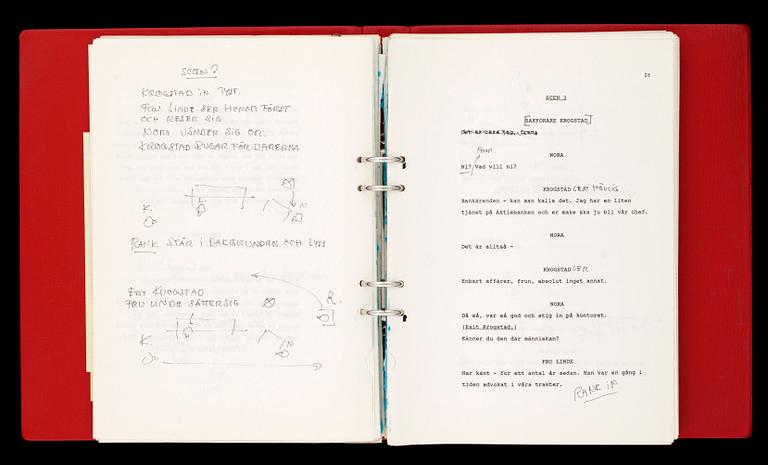 SCEN 3
KROGSTAD IN TYST.
FRU LINDE SER HONOM FÖRST
OCH RESER SIG
NORA VÄNDER SIG OM.
KROGSTAD BUGAR FÖR DAMERNA
K.
L.
N
RANK STÅR I BAKGRUNDEN OCH
EXIT KROGSTAD
FRU LINDE SÄTTER SIG
R.
K.
L
N
26
SCEN 3
[SAKFÖRARE KROGSTAD]
Det är bara jag, fru.
NORA
Ni? Vad vill ni?
KROGSTAD LER HÖVLIG
Bankärenden - kan man kalla det. Jag har en liten
tjänst på Aktiebanken och er make ska ju bli vår chef.
NORA
Det är alltså -
KROGSTAD LER
Enbart affärer, frun, absolut inget annat.
NORA
Då så, var så god och stig in på kontoret.
(Exit Krogstad.)
Känner du den där människan?
FRU LINDE
Har känt - för ett antal år sedan. Han var en gång i
tiden advokat i våra trakter.
RANK IN